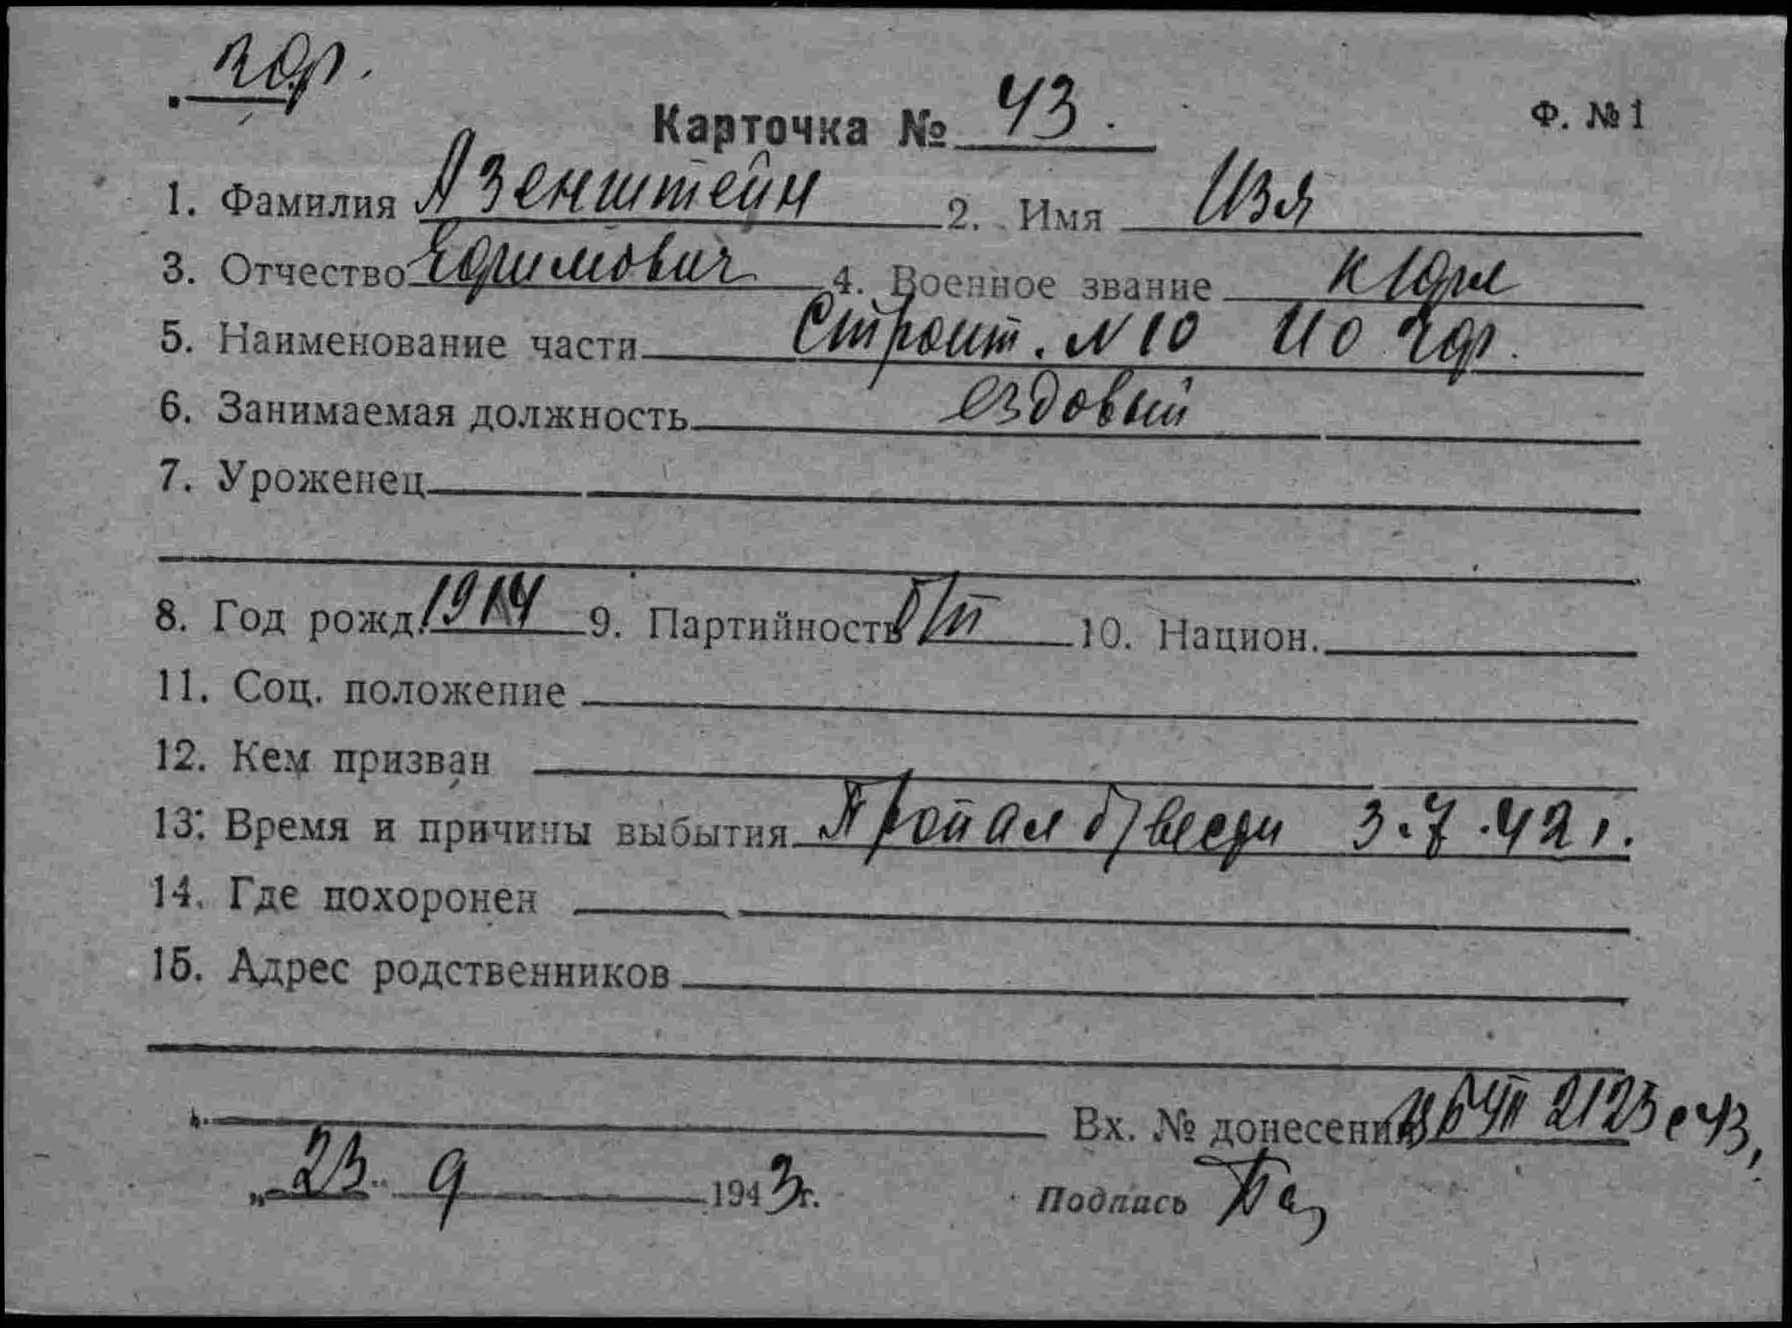 Карточка № 43. Ф. № 1
1. Фамилия Азенштейн 2. Имя Изя
3. Отчество Ефимович 4. Военное звание к/юрм
5. Наименование части Строит. N 10 ИО ЧФ.
6. Занимаемая должность ездовый
7. Уроженец
8. Год рожд. 1914 9. Партийность б/п 10. Национ.
11. Соц. положение
12. Кем призван
13. Время и причины выбытия Пропал б/вести 3.7.42 г.
14. Где похоронен
15. Адрес родственников
Вх. № донесения 2123с 43,
„23" 9 1943г. Подпись